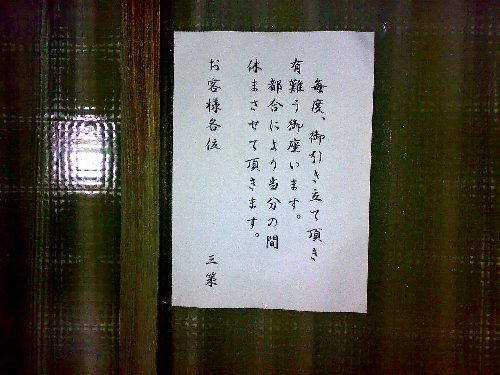 毎度、御引き立て頂き
有難う御座います。
都合により当分の間
休まさせて頂きます。
お客様各位
三築